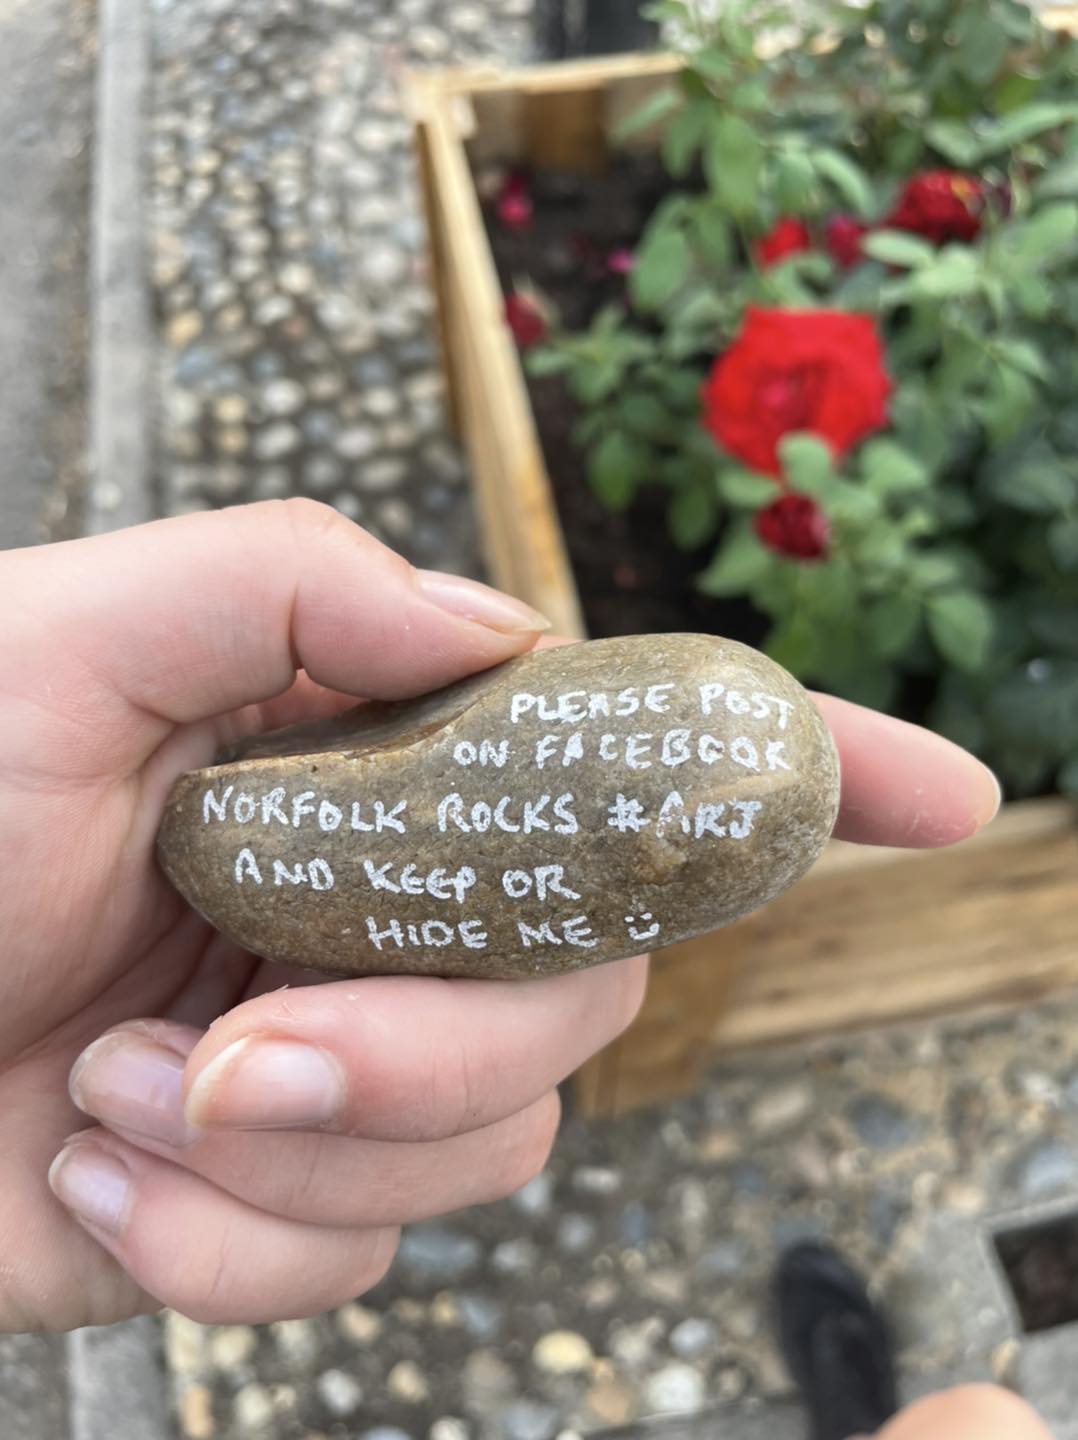 PLEASE POST
ON FACEBOOK
NORFOLK ROCKS #ARJ
AND KEEP OR
HIDE ME